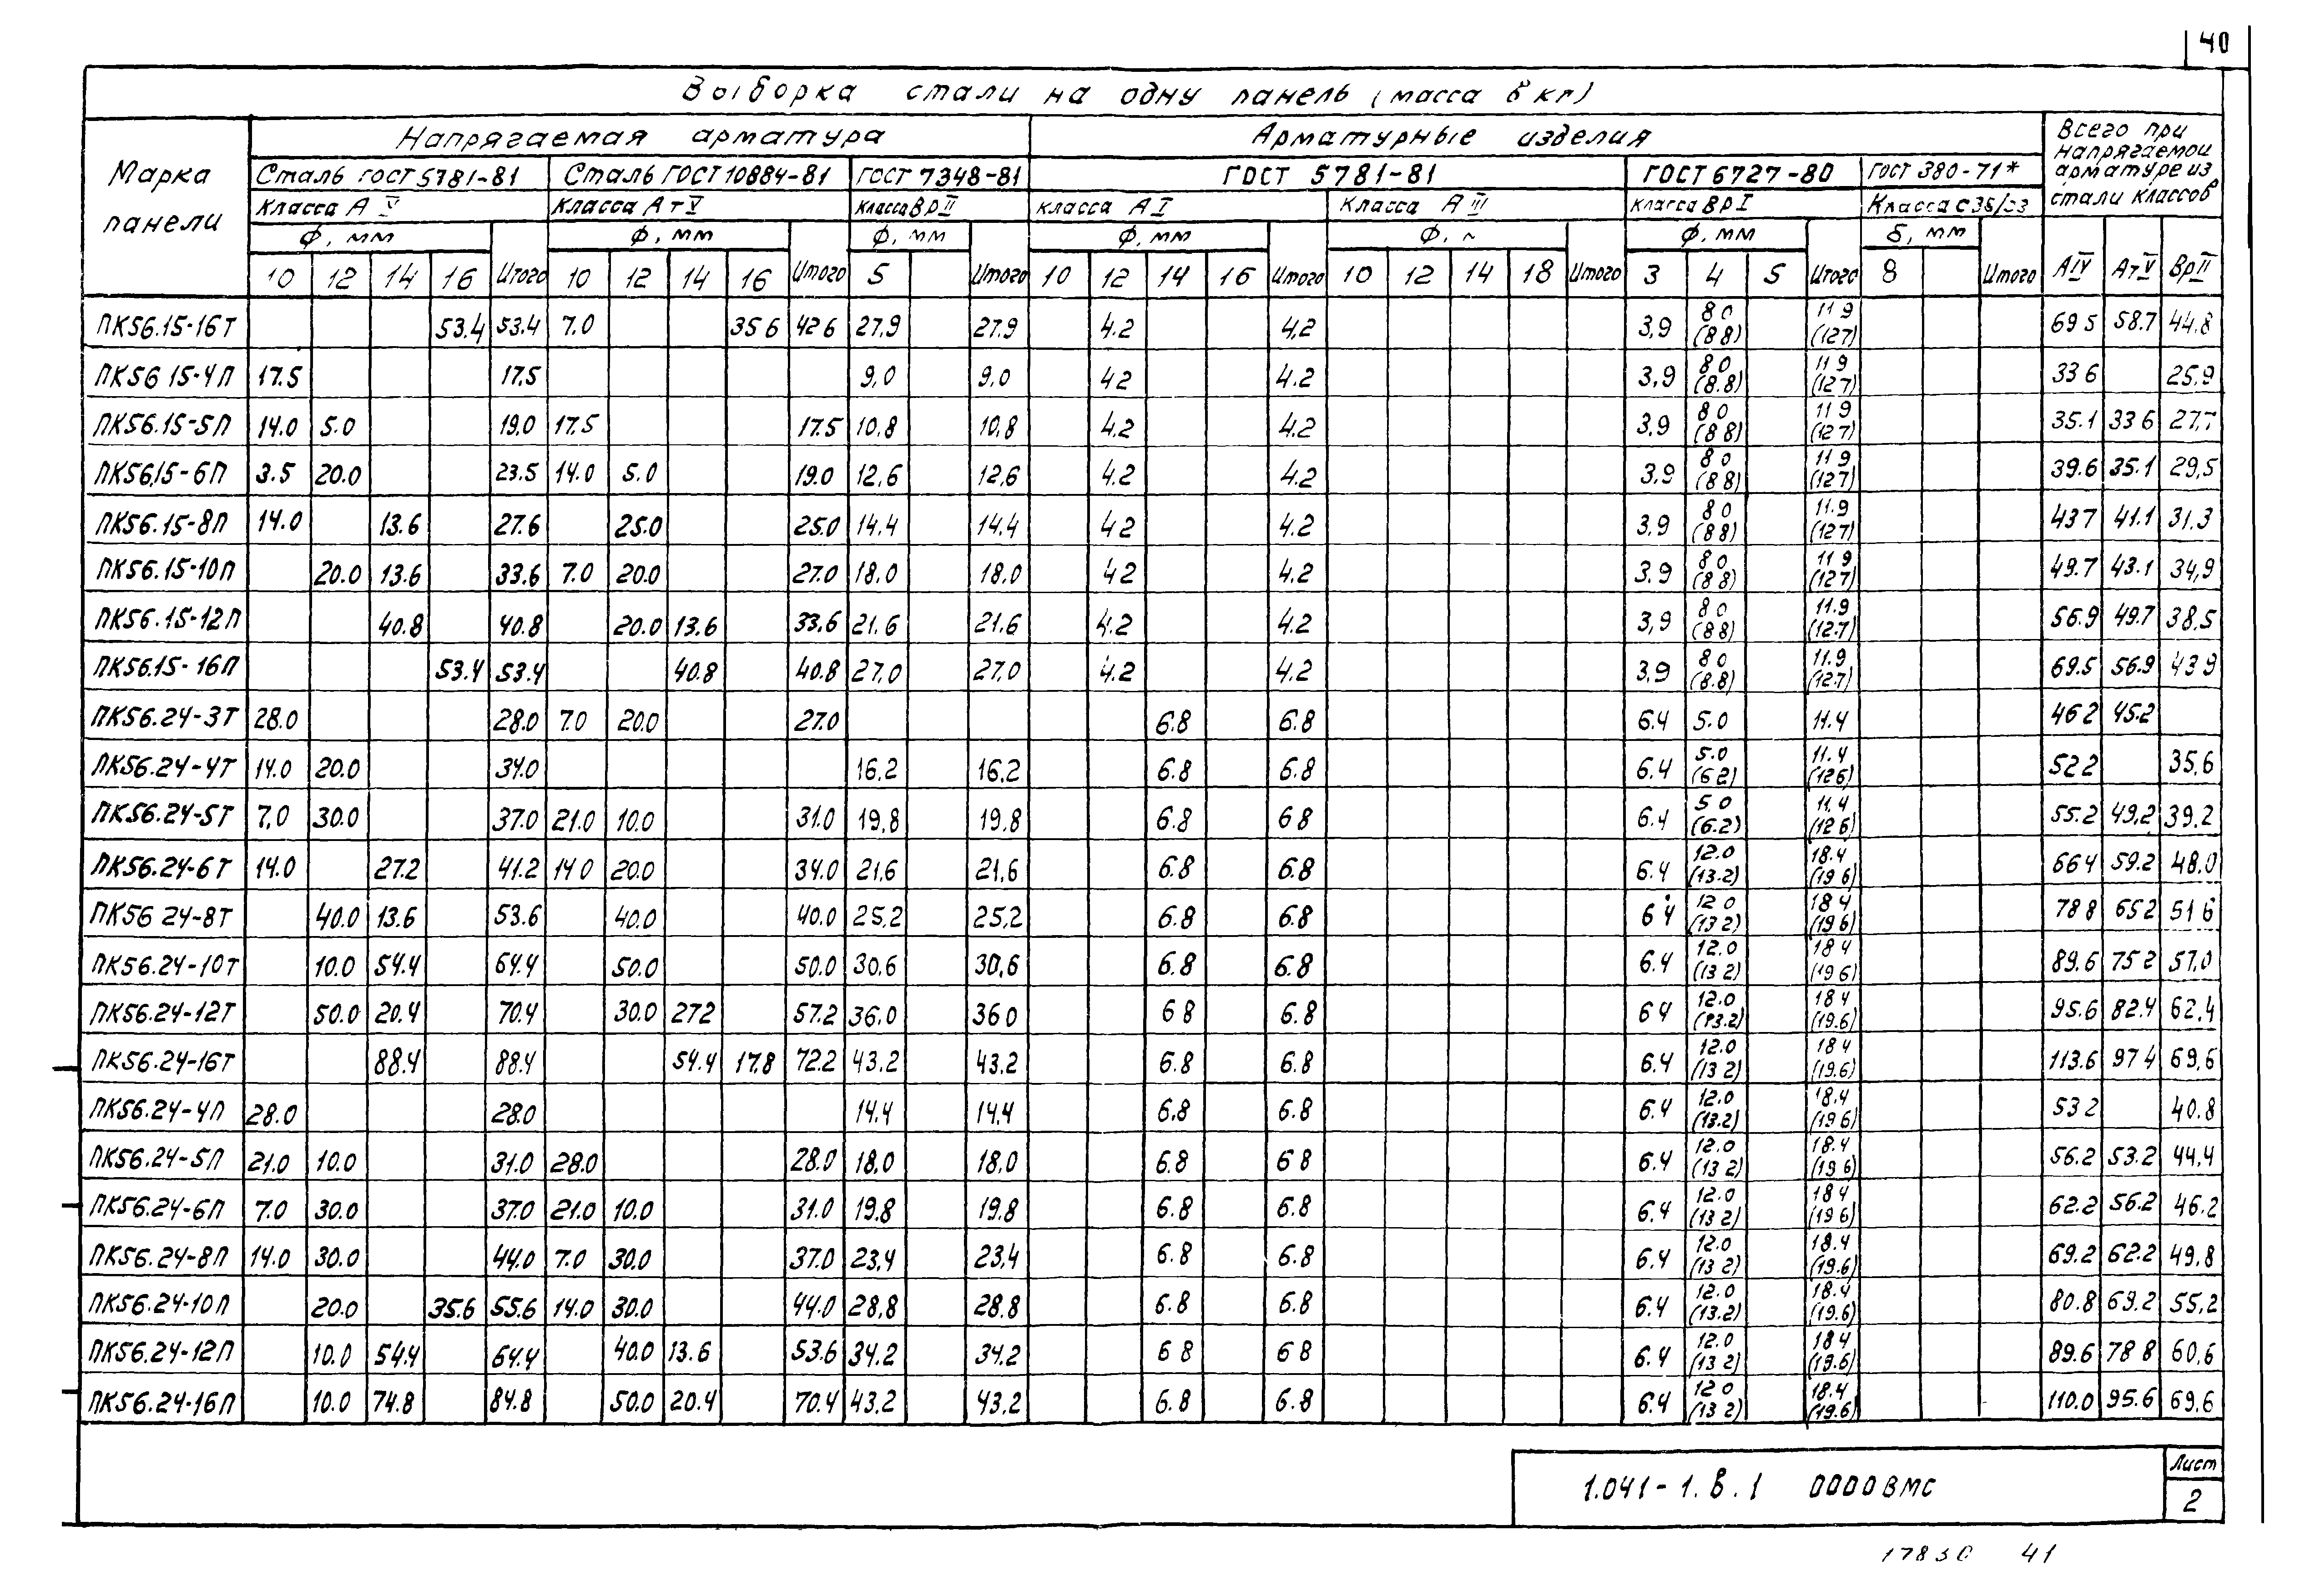 40
Выборка стали на одну панель (масса в кг)
Марка панели
Напрягаемая арматура
Арматурные изделия
Всего при напрягаемой арматуре из стали классов
Сталь ГОСТ 5781-81 Сталь ГОСТ 10884-81 ГОСТ 7348-81 ГОСТ 5781-81 ГОСТ 6727-80 ГОСТ 380-71*
Класса А V Класса Ат V Класса Вр II Класса А I Класса А III Класса Вр I Класса С38/23
Ф, мм Ф, мм Ф, мм Ф, мм Ф, м Ф, мм δ, мм
10 12 14 16 Итого 10 12 14 16 Итого 5 Итого 10 12 14 16 Итого 10 12 14 18 Итого 3 4 5 Итого 8 Итого АIV АтV ВрII
ПК56.15-16Т 53.4 53.4 7.0 35 6 42 6 27,9 27.9 4.2 4,2 3,9 8 0 (8 8) 11 9 (127) 69 5 58.7 44,8
ПК56 15-4П 17.5 17.5 9,0 9,0 4 2 4.2 3,9 8 0 (8.8) 11 9 (12 7) 33 6 25,9
ПК56.15-5П 14.0 5.0 19.0 17.5 17.5 10,8 10,8 4.2 4.2 3,9 8 0 (8 8) 11 9 (12 7) 35.1 33 6 27,7
ПК56,15-6П 3.5 20.0 23.5 14.0 5.0 19.0 12,6 12,6 4.2 4.2 3,9 8 0 (8 8) 11 9 (127) 39.6 35.1 29,5
ПК56.15-8П 14.0 13.6 27.6 25.0 25.0 14,4 14,4 4 2 4.2 3,9 8 0 (8 8) 11.9 (12 7) 43 7 41.1 31,3
ПК56.15-10П 20.0 13.6 33.6 7.0 20.0 27.0 18,0 18,0 4 2 4.2 3,9 8 0 (8 8) 11 9 (12 7) 49.7 43.1 34,9
ПК56.15-12П 40.8 40.8 20.0 13.6 33.6 21.6 21,6 4.2 4.2 3,9 8 0 (8 8) 11.9 (12.7) 56.9 49.7 38.5
ПК56.15-16П 53.4 53.4 40.8 40.8 27,0 27,0 4.2 4.2 3,9 8 0 (8.8) 11.9 (12.7) 69.5 56.9 43 9
ПК56.24-3Т 28.0 28.0 7.0 20.0 27.0 6.8 6.8 6.4 5.0 11.4 46 2 45.2
ПК56.24-4Т 14.0 20.0 34.0 16,2 16,2 6.8 6.8 6.4 5.0 (6 2) 11.4 (126) 52 2 35,6
ПК56.24-5Т 7,0 30.0 37.0 21.0 10.0 31.0 19,8 19,8 6.8 6 8 6.4 5 0 (6.2) 11.4 (12 6) 55.2 49,2 39.2
ПК56.24-6Т 14.0 27.2 41.2 14 0 20.0 34.0 21,6 21,6 6.8 6.8 6.4 12.0 (13.2) 18.4 (19 6) 66 4 59.2 48,0
ПК56 24-8Т 40.0 13.6 53.6 40.0 40.0 25,2 25,2 6.8 6.8 6 4 12 0 (13 2) 18 4 (19 6) 78 8 65 2 51 6
ПК56.24-10Т 10.0 54.4 64.4 50.0 50.0 30,6 30,6 6.8 6.8 6.4 12.0 (13 2) 18 4 (19 6) 89.6 75 2 57,0
ПК56.24-12Т 50.0 20.4 70.4 30.0 27 2 57.2 36,0 36 0 6 8 6.8 6 4 12.0 (13.2) 18 4 (19.6) 95.6 82.4 62,4
ПК56.24-16Т 88.4 88.4 54.4 17.8 72.2 43,2 43,2 6.8 6.8 6.4 12.0 (13 2) 18 4 (19.6) 113.6 97 4 69,6
ПК56.24-4П 28.0 28.0 14,4 14,4 6.8 6.8 6.4 12.0 (13.2) 18.4 (19 6) 53 2 40.8
ПК56.24-5П 21.0 10.0 31.0 28.0 28.0 18,0 18,0 6.8 6 8 6.4 12.0 (13 2) 18.4 (19 6) 56.2 53.2 44,4
ПК56.24-6П 7.0 30.0 37.0 21.0 10.0 31.0 19.8 19.8 6.8 6.8 6.4 12.0 (13 2) 18 4 (19 6) 62.2 56.2 46.2
ПК56.24-8П 14.0 30.0 44.0 7.0 30.0 37.0 23,4 23,4 6.8 6.8 6.4 12.0 (13 2) 18.4 (19.6) 69.2 62.2 49,8
ПК56.24-10П 20.0 35.6 55.6 14.0 30.0 44.0 28,8 28.8 6.8 6.8 6.4 12.0 (13.2) 18.4 (19.6) 80.8 69.2 55,2
ПК56.24-12П 10.0 54.4 64.4 40.0 13.6 53.6 34.2 34.2 6 8 6 8 6.4 12.0 (13 2) 18 4 (19.6) 89.6 78 8 60,6
ПК56.24-16П 10.0 74.8 84.8 50.0 20.4 70.4 43,2 43,2 6.8 6.8 6.4 12 0 (13 2) 18.4 (19.6) 110.0 95.6 69,6
1.041-1.В.1 0000ВМС
Лист
2
17830 41